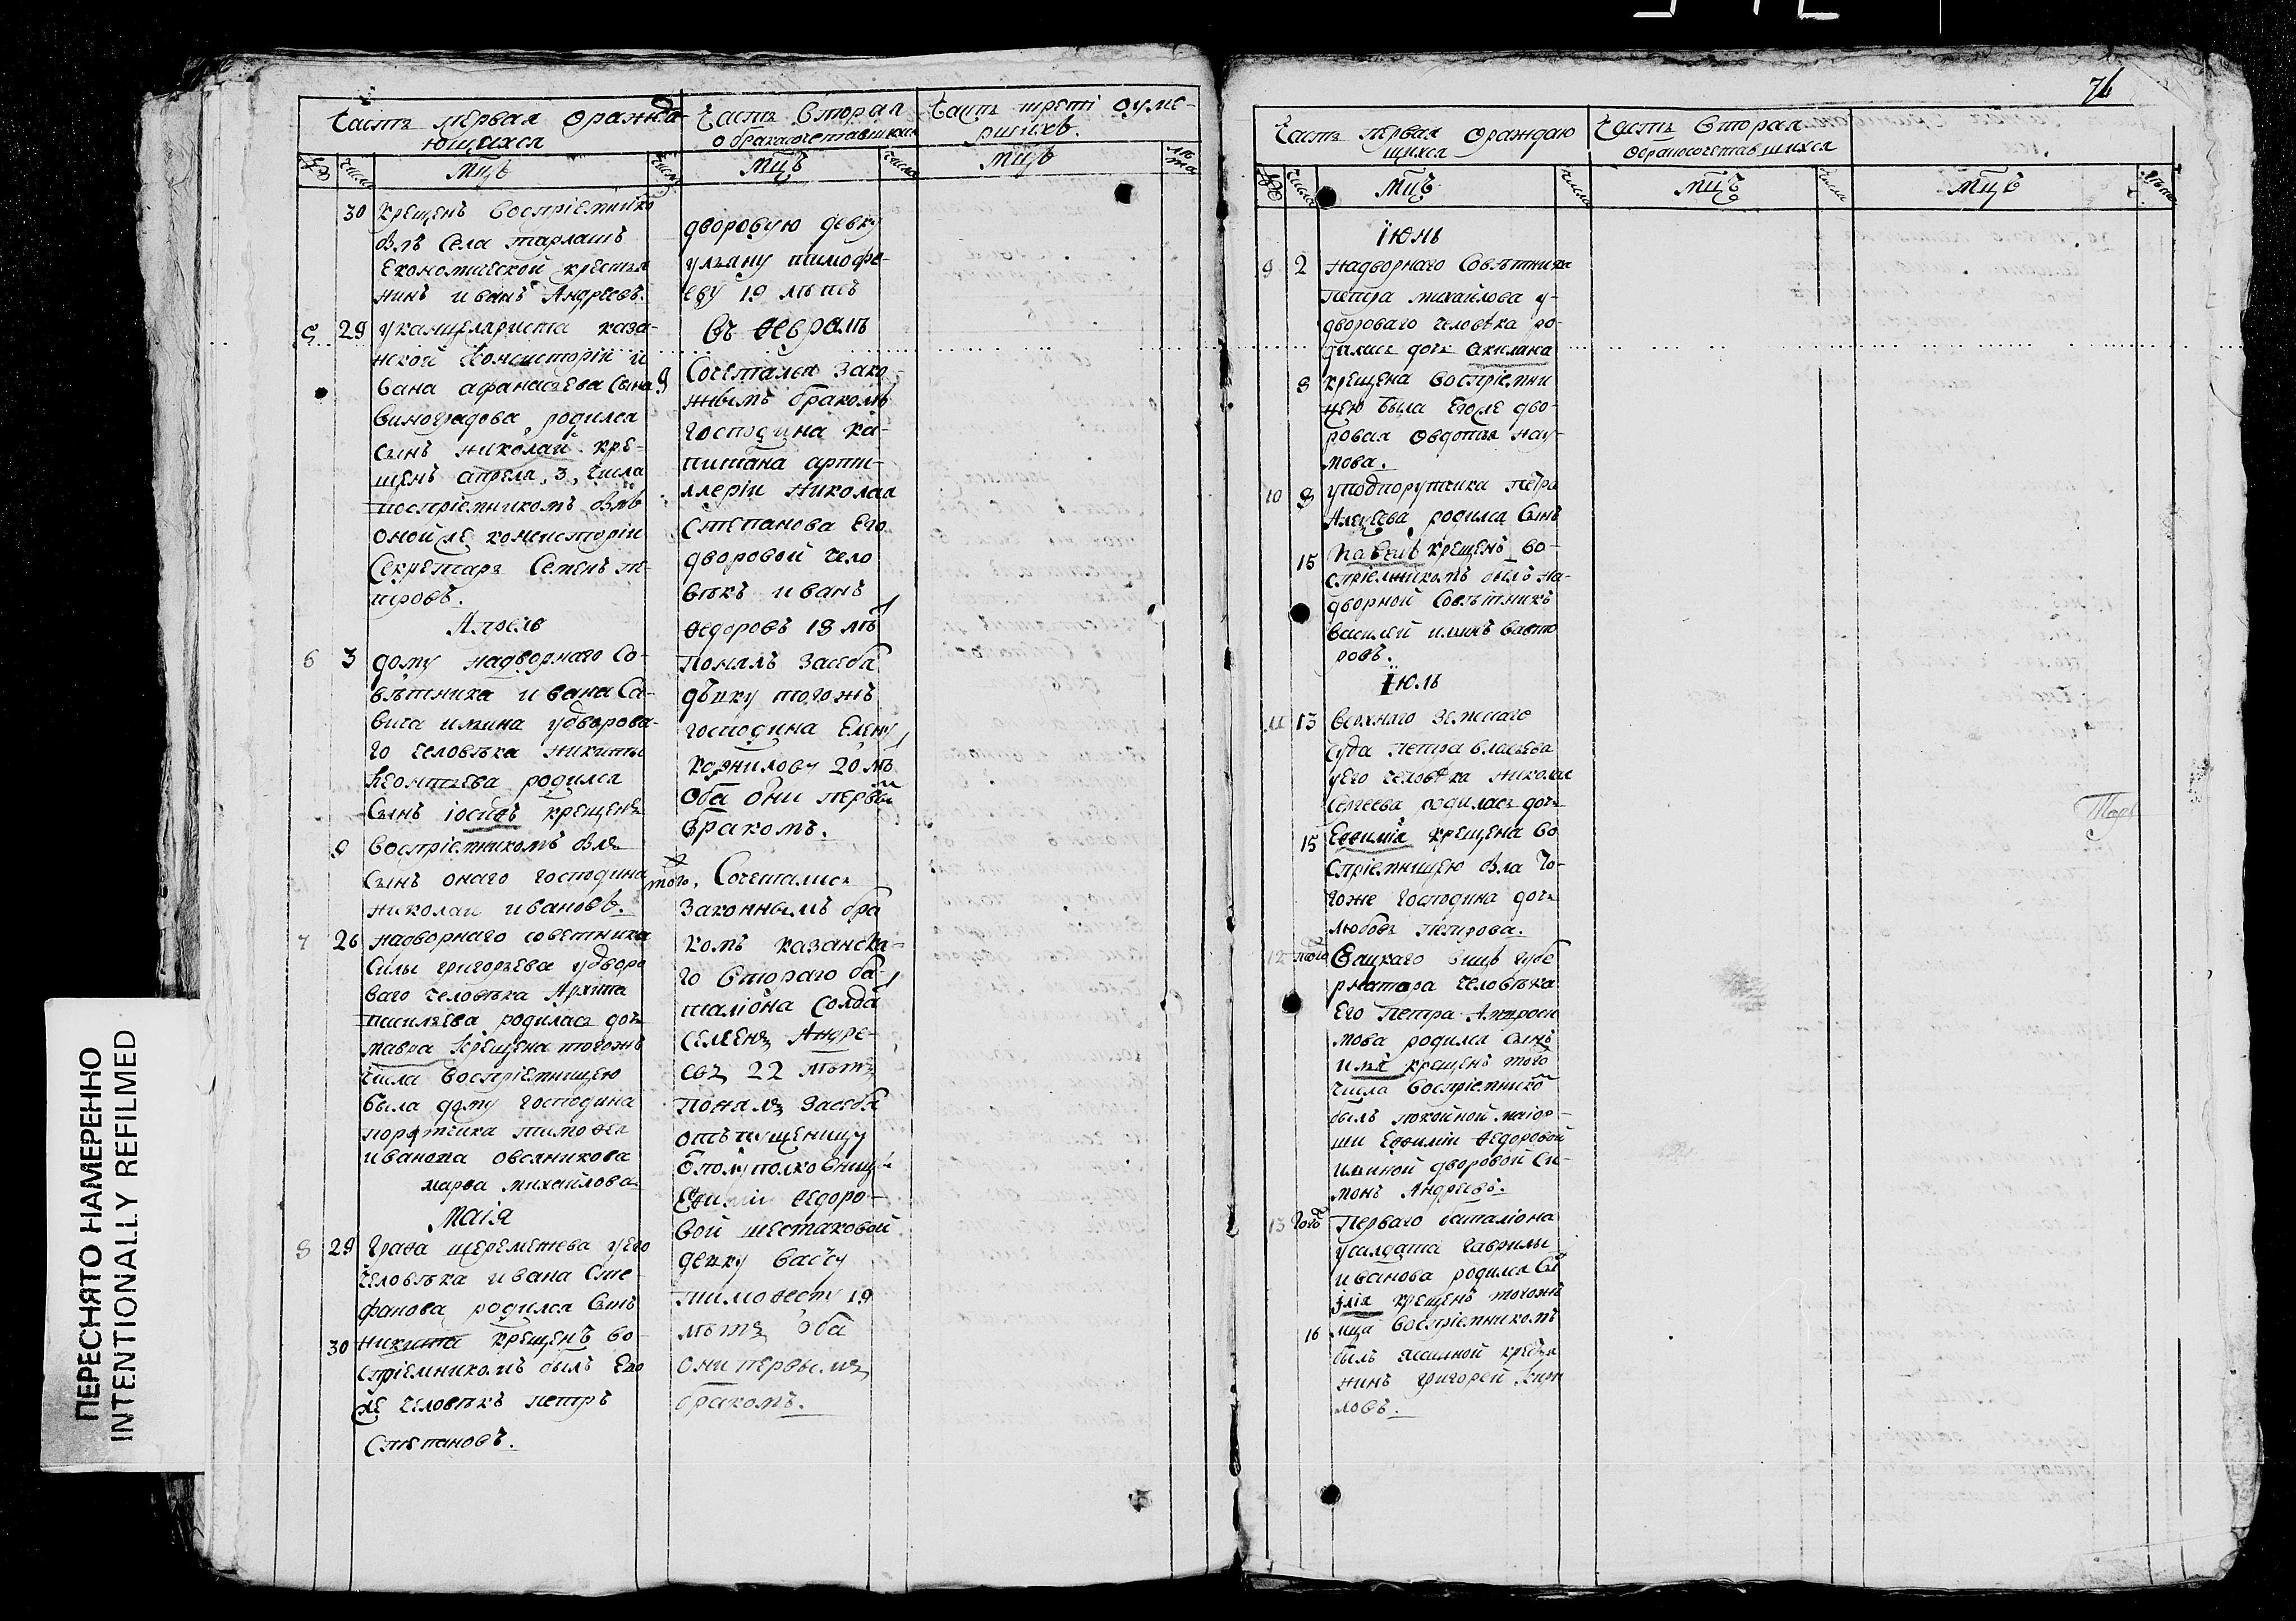 74
Часть первая ѡражда-
ющихся
Часть вторая
ѡбракосочетавшихся
Часть трети ѡуме-
ршихъ.
число
мцъ
число
мцъ
число
мцъ
лѣта
30 крещенъ воспріемнико
былъ села тарлашъ
Економической крестья
нинъ иванъ Андреевъ.
5 29 уканцеляриста каза-
нской консисторіи и
вана афанасьева сына
виноградова родился
сынъ николай кре-
щенъ апреля 3, числа
воспріемникомъ былъ
оной же консисторіи
Секретарь Семенъ пе
тровъ.
Апрель
6 3 дому надворнаго со-
вѣтника ивана са-
вича ильина удворова-
го человѣка никиты
Леонтьева родился
сынъ іосифъ крещенъ
9 воспріемникомъ былъ
сынъ онаго господина
николаи ивановъ.
7 26 надворнаго советника
силы григорьева удворо
ваго человѣка Архипа
васильева родилась дочь
мавра крещена тогожъ
числа воспріемницею
была дому господина
порутчика тимофея
иванова овсяникова
марѳа михайлова
Маія
8 29 Графа щереметева уего
человѣка ивана Сте-
фанова родился сынъ
30 никита крещенъ во-
спріемникомъ былъ Его
же человѣкъ петръ
Степановъ.
дворовую девку
ульяну тимофе-
еву 19 лѣтъ
въ ѳевралѣ
9 Сочетался зако-
ннымъ бракомъ
господина ка-
питана арти-
ллеріи николая
Степанова Его
дворовой чело
вѣкъ иванъ
ѳедоровъ 18 лѣт
Понялъ засебя
дѣвку тогожъ
господина Елену
корнилову 20 лѣ
оба они первы
бракомъ.
того, Сочетались
законнымъ бра
комъ казанска-
го втораго ба-
таліона солда
семенъ Андре-
евъ 22 лѣтъ
Понялъ засебя
отпущеницу
подполуполковницы
Евиміи ѳедоро-
вой шестаковой
девку вассу
тимоѳееву 19
лѣтъ оба
они первымъ
бракомъ.
Часть первая ѡраждаю
щихся
Часть вторая
ѡбракосочетавшихся
число
мцъ
число
мцъ
число
мцъ
лѣта
Іюнь
9 2 надворнаго Совѣтника
петра михайлова у-
двороваго человѣка ро-
дилась дочь акилина
8 крещена воспріемни
цею была Егоже дво-
ровая ѡвдотья нау-
мова.
10 8 уподпорутчика петра
Алеѯеева родился сынъ
15 павелъ крещенъ во-
спріемникомъ былъ на-
дворной Совѣтникъ
василей
ровъ.
Іюль
11 13 верхняго земскаго
суда петра власьева
уего человѣка николая
Сергеева родилась дочь
15 Евѳимія крещена во
спріемницею была То-
гоже господина дочь
любовь петрова.
12 того вятцкаго вицъ губе
рнатора человѣка
Его Петра Амброси
мова родился сынъ
илья крещенъ того
числа воспріемнико
былъ покойной маіор-
ши Евѳиміи ѳедоровой
ильиной дворовой Си-
монъ Андреевъ.
13 того Перваго баталіона
усалдата гаврилы
иванова родился сы
ілія крещенъ тогожъ
16 мца воспріемникомъ
былъ ясашной крестья
нинъ григорей кири
ловъ.
Тарл
ПЕРЕСНЯТО НАМЕРЕННО
INTENTIONALLY REFILMED